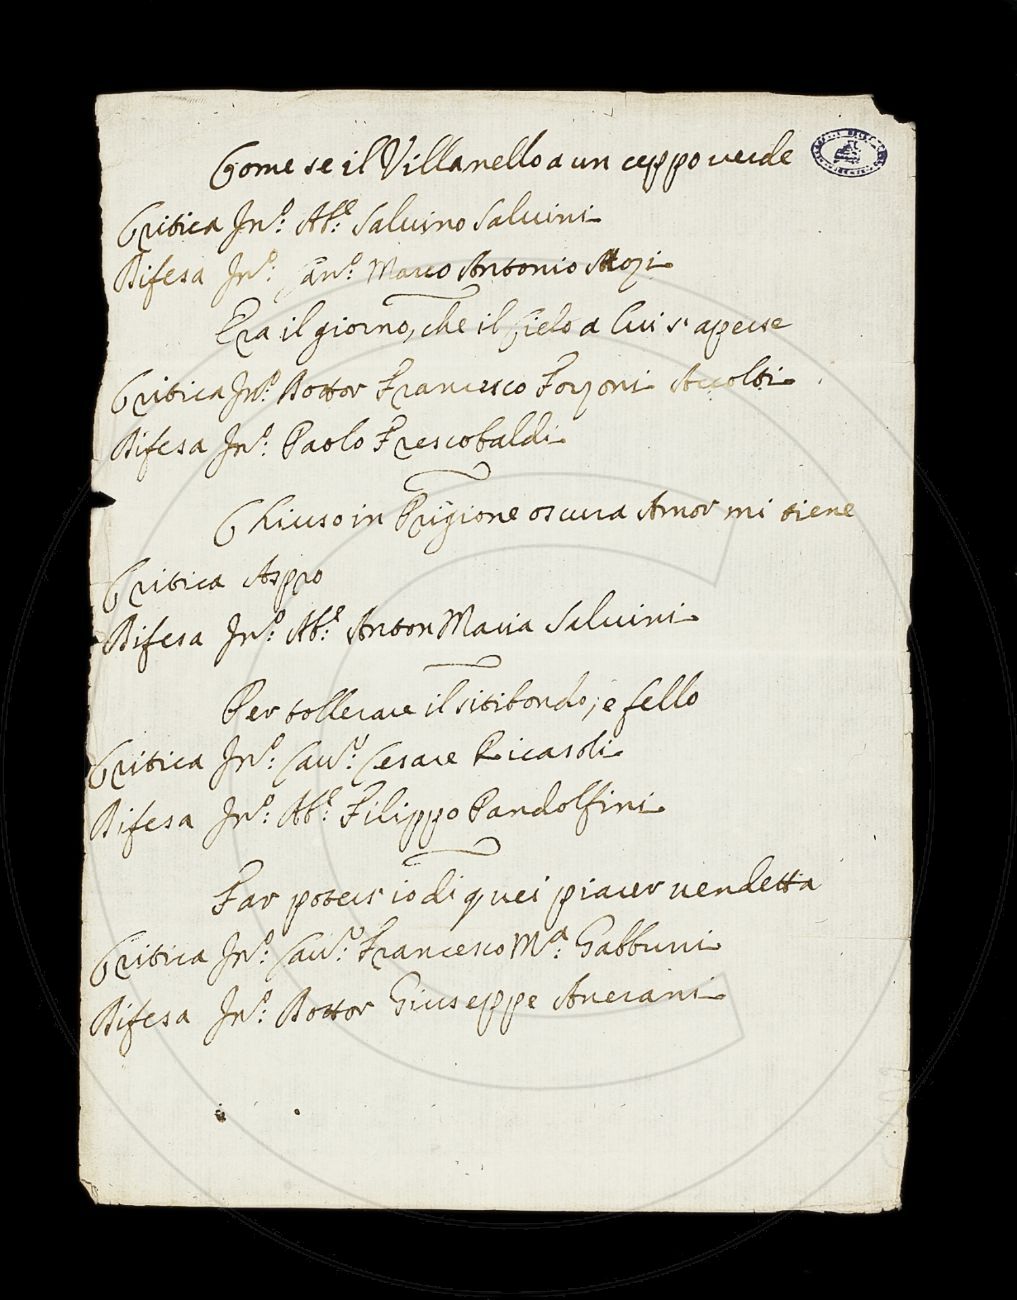 Come se il Villanello a un ceppo verde
Critica Jn.º: Ab.e: Salvino Salvini
Difesa Jn.º: Can.º: Marco Antonio Mozi
Era il giorno, che il Cielo a lui s'aperse
Critica Jn.º: Dottor Francesco Forzoni Accolti
Difesa Jn.º: Paolo Frescobaldi
Chiuso in Prigione oscura Amor mi tiene
Critica Aspro
Difesa Jn.º: Ab.e: Anton Maria Salvini
Per tollerare il sitibondo, e fello
Critica Jn.º: Cav.º: Cesare Ricasoli
Difesa Jn.º: Ab.e: Filippo Pandolfini
Far potess io di quei piacer vendetta
Critica Jn.º: Cav.º: Francesco M.a: Gabburri
Difesa Jn.º: Dottor Giuseppe Averani